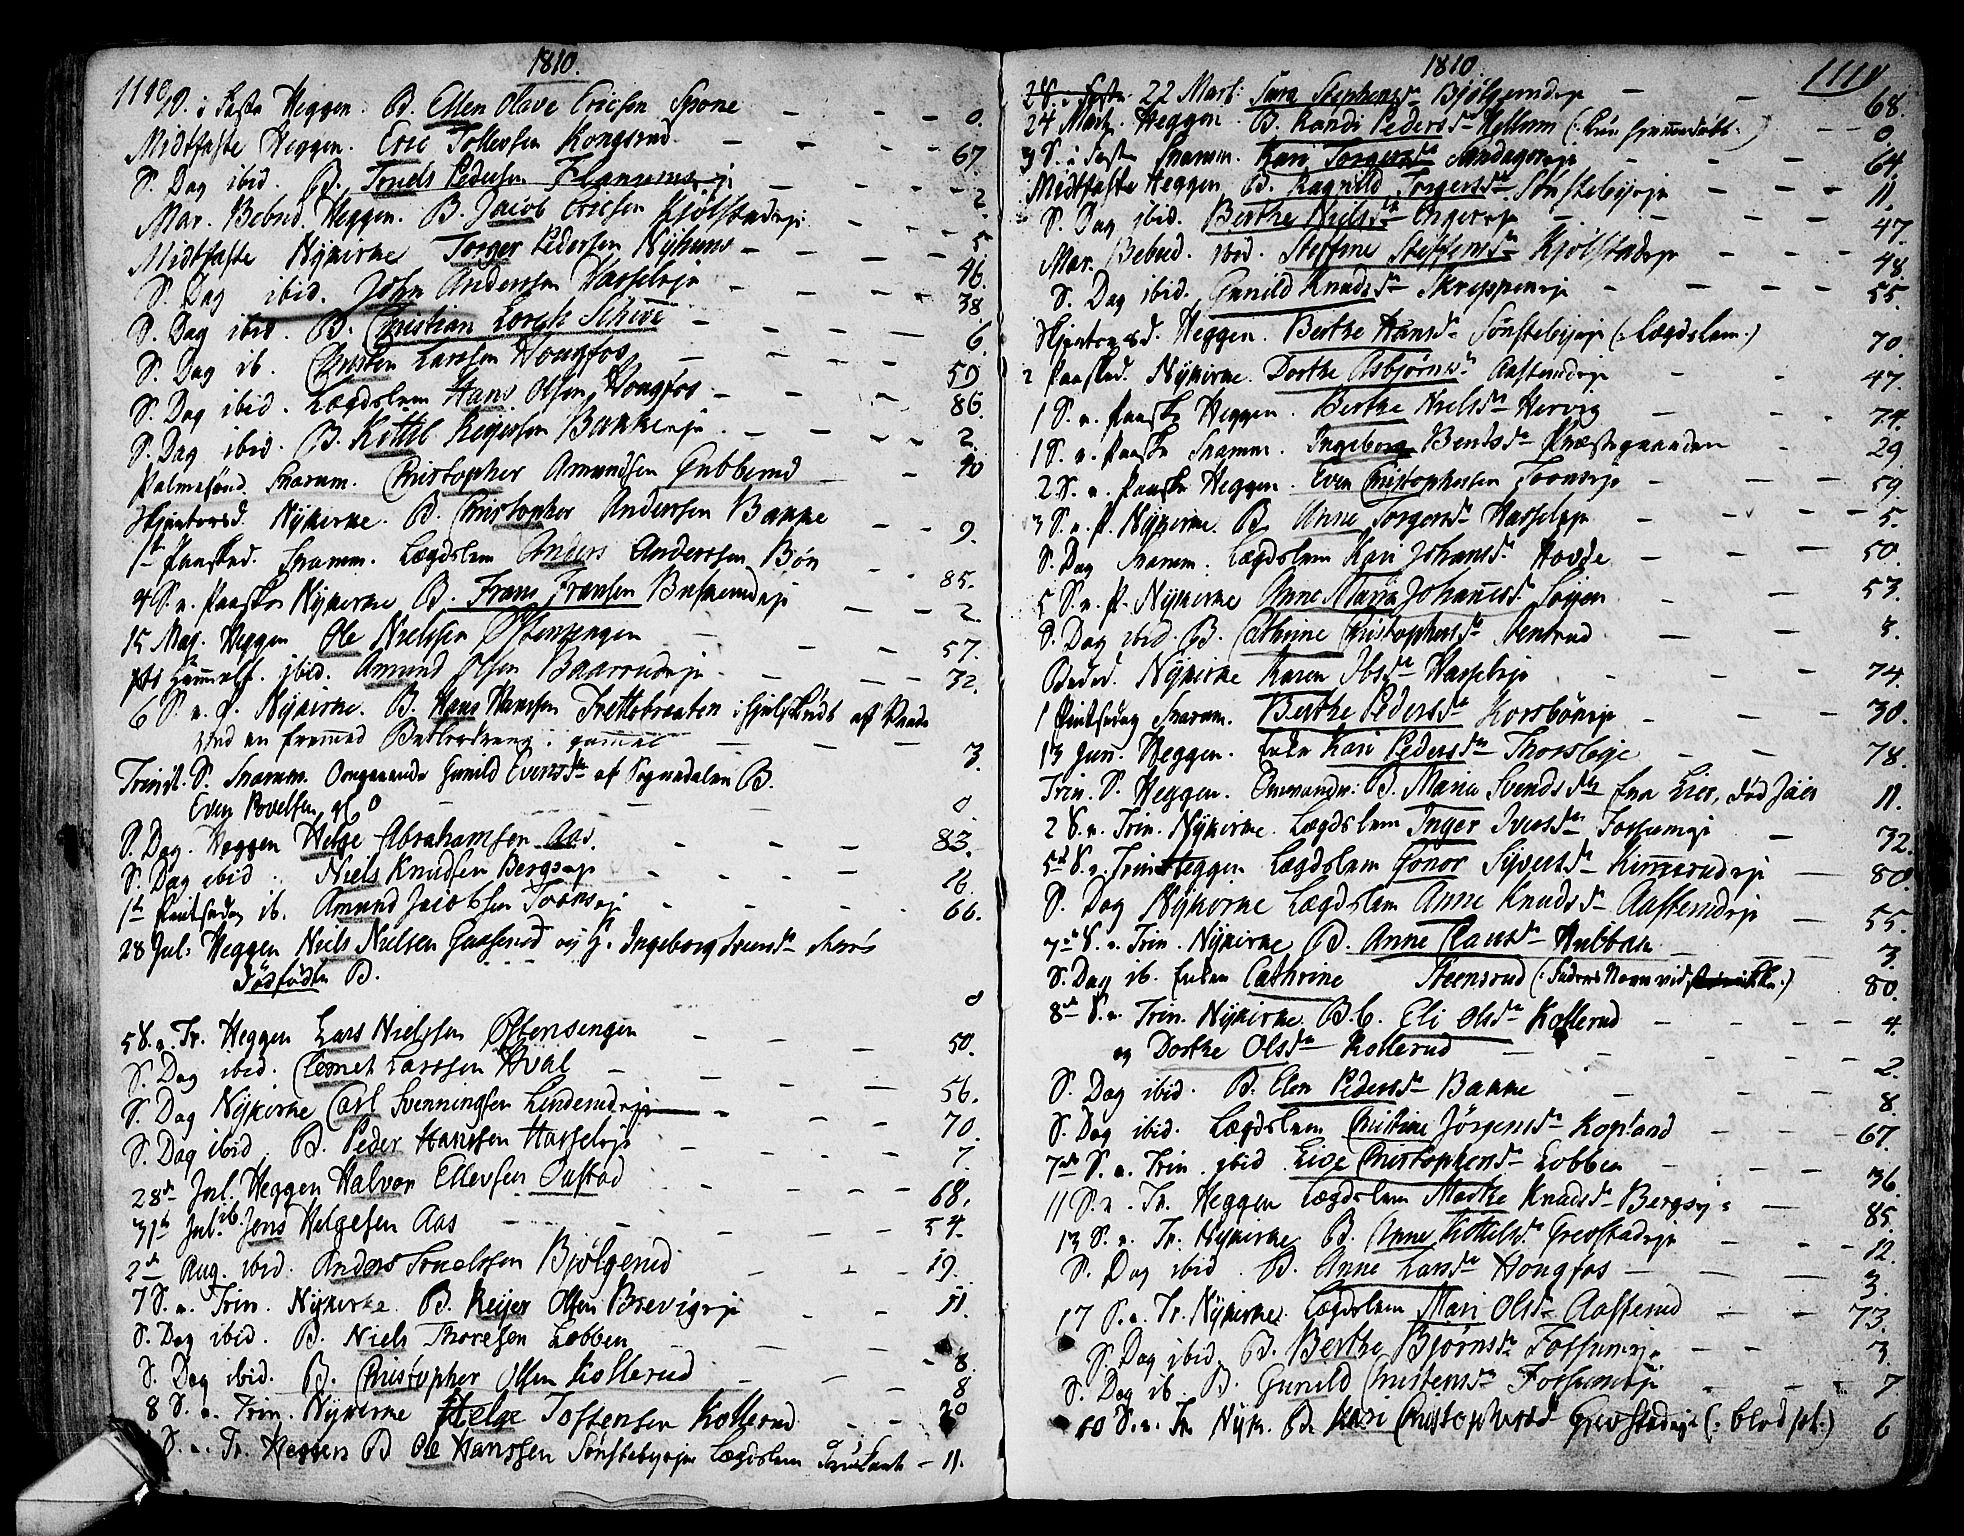 1810.
1110
D. i Faste Heggen. B. Ellen Olave Ericsen Spone 0.
Midtfaste Heggen. Eric Tollevsen Kongsrud. 67.
S. Dag ibid. B. Truels Pedersen 2.
Mar. Bebud. Heggen. B. Jacob Ericsen Kjølstadeje 5
Midtfaste Nykirke Torger Pedersen Nyhuus 46.
S. Dag ibid. John Anderssen Hasseleje 38.
S. Dag ibid. B. Christian Lorch Schive 6.
S. Dag ib. Christen Larssen Hongfos 59
S. Dag ibid. Lægdslem Hans Olsen Hongfos 86.
S. Dag ibid. B. Kittil Reyersen Bakkeeje 2.
Palmesønd. Snarum. Christopher Amundsen Gubberud 40
Skjertorsd. Nykirke. B. Christopher Anderssen Bakke 9.
1ste Paasked. Snarum. Lægdslem Anders Anderssen Bøn 85.
4 S. e. Paaske Nykirke B. Frans Fransen Buskerudeje 2
15 Maj. Heggen Ole Nielssen Østensengen 57.
Himmelf. ibid. Amund Olsen Baarrudeje 32.
6 S. e. P. Nykirke. B. Hans Hanssen Trettebraaten ihjelskudt af Vaade
ved en fremmed gammel 3.
Trinit. S. Snarum. Omgaaende Gunild Evensdr af Sognedalen B.
Even Povelsen gl. 0 0.
S. Dag. Heggen Helge Abrahamsen Aas. 83.
S. Dag ibid. Niels Knudsen Bergseje 16.
1ste Pintsedag ib. Amund Jacobsen Toenseje 66.
28 Jul: Heggen Niels Nielsen Gaaserud og G. Ingeborg Svensdr
Dødfødte B. 0
5 S. e. Tr. Heggen Lars Nielssen Østensengen 50.
S. Dag ibid. Clemet Larssen Hval 56.
S. Dag Nykirke Carl Svenningsen Linderudeje 70.
S. Dag ibid B. Peder Hanssen Hasseleje 7.
28de Jul. Heggen Halvor Ellevsen Oustad 68.
31te Jul. ib. Jens Helgesen Aas 54.
2de Aug. ibid. Anders Truelssen Bjølgerud 19.
7 S. e. Trin. Nykirke. B. Reijer Olsen Brevigeje 11.
S. Dag ibid. B. Niels Thoresen Lobben
S. Dag ibid. B. Christopher Olsen Kollerud 8
8 S. e. Trin. Nykirke Helge Tostensen Kollerud 20
S. e. Tr. Heggen B Ole Hanssen Sønstebyeje Lægdslem 11.
1810
1111
22 Mart: Sara Stephensdr Bjølgerudeje 68.
24 Martz Heggen. B. Randi Pedersdr Hellum 0.
3 S. i Faste Snarum. Kari Torgersdr 64.
Midtfaste Heggen B. Ragnild Torgersdr Sønstebyeje 11.
S. Dag ibid. Berthe Nielsdr 47.
Mar. Bebud. ibid. Steffine Steffensdr Kjølstadeje 48.
S. Dag ibid. Gunild Knudsdr Skreppeneje 55.
Skjertorsd. Heggen. Berthe Hansdr Sønstebyeje (: Lægdslem :) 70.
2 Paasked. Nykirke. Dorthe Asbjørnsdr Aasterudeje 47.
1 S. e. Paaske Heggen. Berthe Nielsdr Hervig 74.
1 S. e. Paaske Snarum. Ingeborg Bentsdr Præstegaarden 29.
2 S. e. Paaske Heggen. Even Christophersen Toenseje 59.
3 S. e. P. Nykirke B. Anne Torgersdr Hasseleje 5.
S. Dag Snarum. Lægdslem Kari Johansdr Hovde 50.
5 S. e. P. Nykirke Anne Maria Johannesdr 53.
S. Dag ibid. B. Cathrine Christophersdr Stensrud 3.
Beded. Nykirke Karen Ibsdr Hasseleje 74.
1 Pintsedag Snarum. Berthe Pedersdr Korsbøneje 30.
13 Jun. Heggen. Enke Kari Pedersdr Thorsbyeje 78.
Trin. S. Heggen. B. Maria Svendsdr fra Lier, død 11.
2 S. e. Trin. Nykirke. Lægdslem Inger Iversdr Fossumeje 32.
5te S. e. Trin Heggen Lægdslem Gonor Syversdr Kimerudeje 80.
S. Dag Nykirke Lægdslem Anne Knudsdr Aasterudeje 55.
7de S. e. Trin. Nykirke B. Anne Clausdr Hulbak 3.
S. Dag ib. Enken Cathrine Steensrud (: Faders Navn 80.
8de S. e. Trin. Nykirke. B. 6. Eli Olsdr Kollerud 4.
og Dorthe Olsdr Kollerud 2.
S. Dag ibid. B. Elen Pedersdr Bakke 8.
S. Dag ibid. Lægdslem Christine Jørgensdr Kopland 67.
7de S. e. Trin. ibid. Live Christophersdr Lobben 36.
11 S. e. Tr. Heggen Lægdslem Marthe Knudsdr Bergseje 85.
13 S. e. Tr. Nykirke B. Anne Kittelsdr Grevstadeje 12.
S. Dag ibid. B. Anne Larsdr Hongfos 3.
17 S. e. Tr. Nykirke. Lægdslem Mari Olsdr Aasterud 73.
S. Dag ibid. B. Berthe Bjørnsdr Fossumeje 3.
S. Dag ib. B. Gunild Christensdr Fossumeje 7
S. e. Tr. Nyk. B. Kari Christophersdr Grevstadeje (: blodsot :) 6